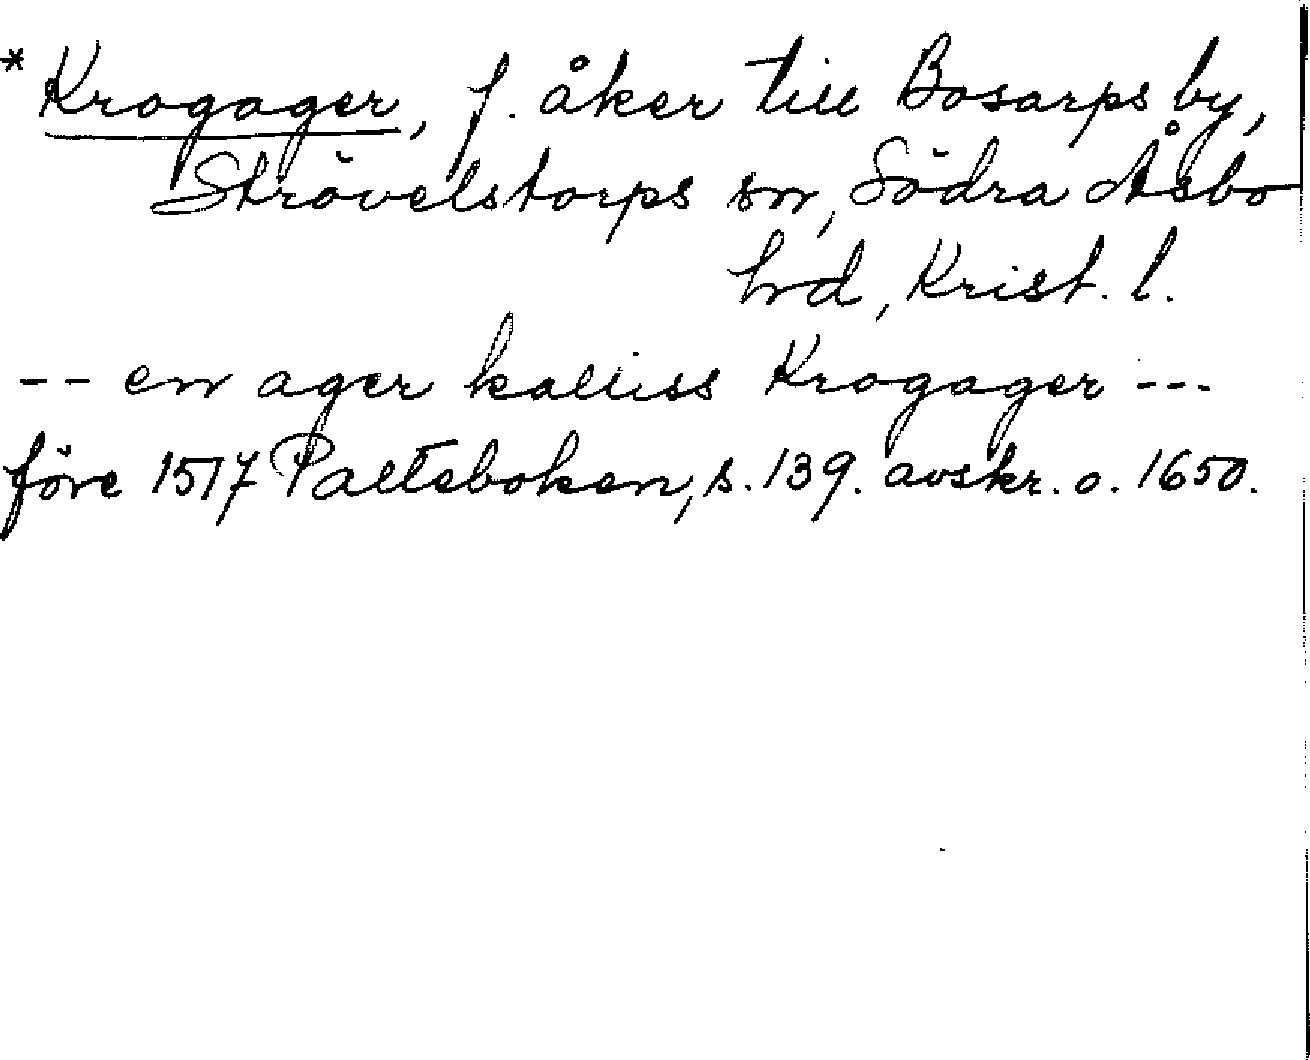 * Krogager, f. åker till Bosarps by,
Strövelstorps sn, Södra Åsbo
hd, Krist. l.
-- en ager kalliss Krogager ---
före 1517 Palteboken, s. 139. avskr. o. 1650.